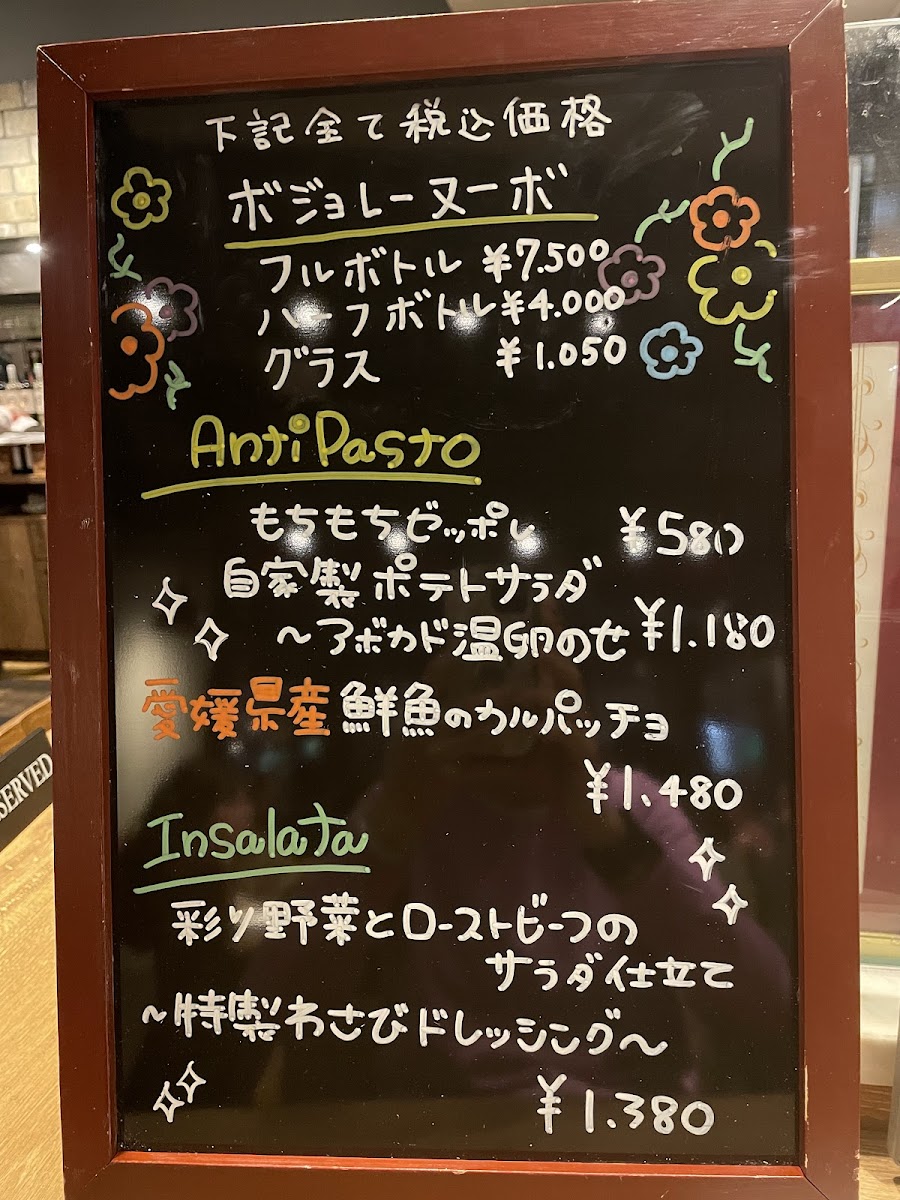 下記全て税込価格
ボジョレーヌーボ
フルボトル ¥7.500
ハーフボトル ¥4.000
グラス ¥1.050
AntiPasto
もちもちゼッポレ ¥580
自家製ポテトサラダ
～アボカド温卵のせ ¥1.180
愛媛県産鮮魚のカルパッチョ
¥1.480
Insalata
彩り野菜とローストビーフの
サラダ仕立て
～特製わさびドレッシング～
¥1.380
SERVED